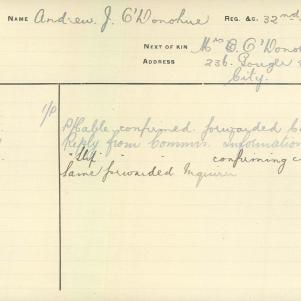 NAME Andrew. J. O'Donohue REG. &C. 32nd
NEXT OF KIN Mrs B. O'Dono
ADDRESS 236. Gouger
City.
1/P
P/Cable confirmed. forwarded
Reply from Commn. Information
" Slip " " confirming
same forwarded Inquirer